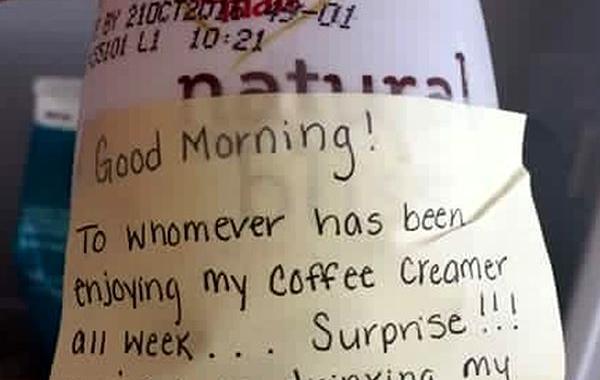 BY 21OCT2016 49-01
55101 L1 10:21
natural
Good Morning!
To whomever has been
enjoying my Coffee Creamer
all week... Surprise!!!
drinking my